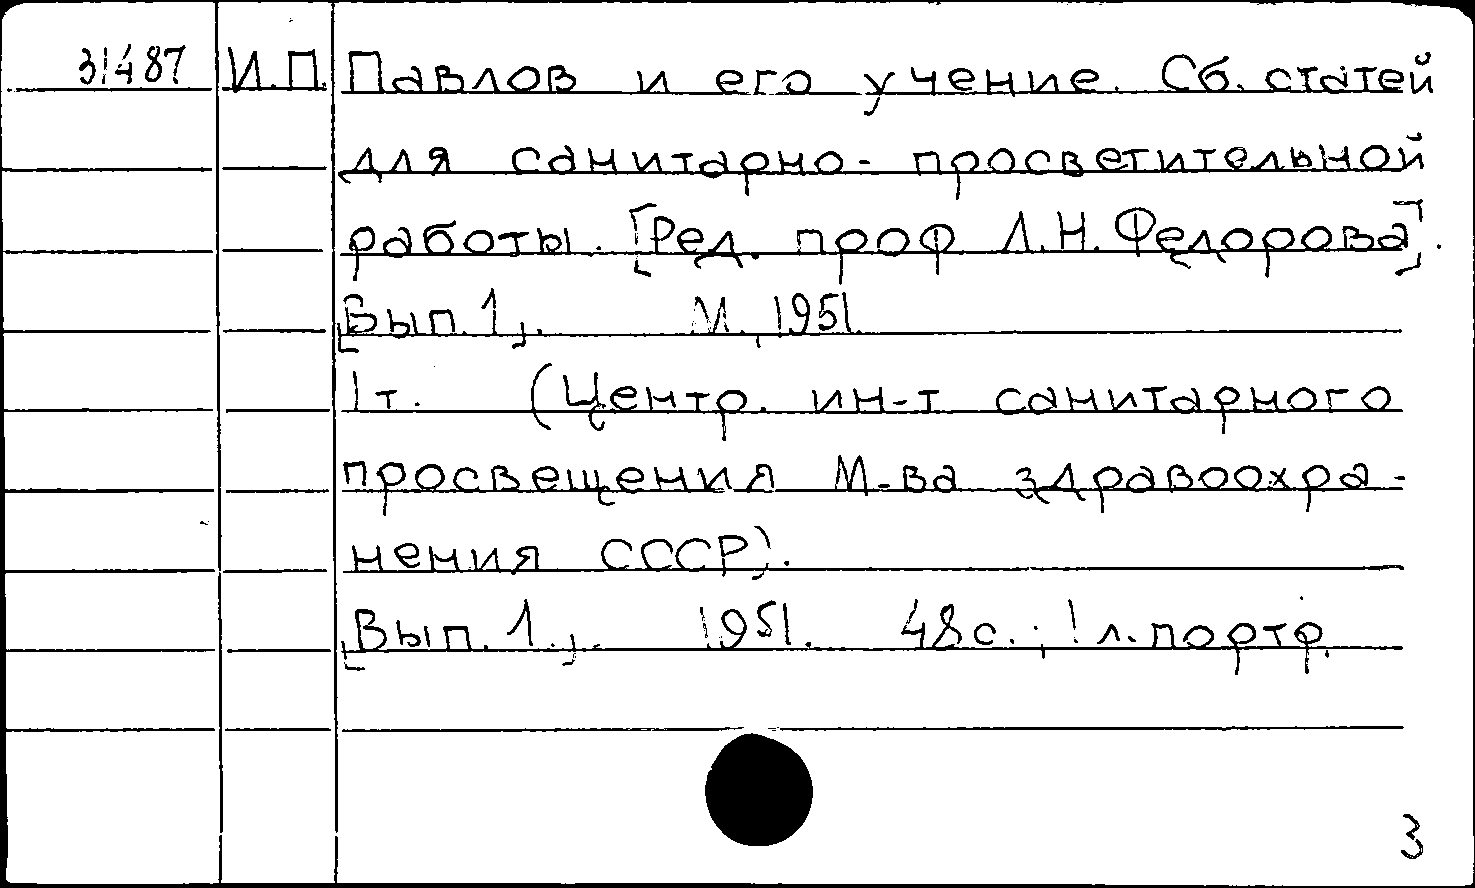 31487 И.П. Павлов и его учение. Сб. статей
для санитарно-просветительной
работы. [Ред. проф Л.Н. Федорова].
[Вып. 1]. М., 1951.
1т. (Центр. ин-т санитарного
просвещения М-ва здравоохра-
нения СССР).
[Вып. 1.]. 1951. 48с.; 1 л. портр.
3